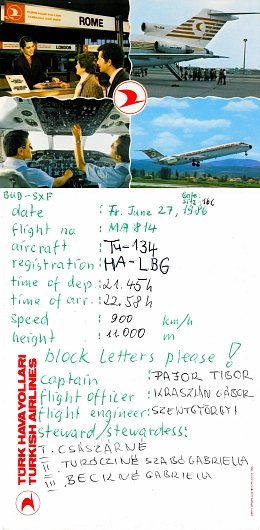 ROME
LONDON
BUD-SXF
date : Fr. June 27, 1986
flight no : MA 814
aircraft : Tu-134
registration : HA-LBG
time of dep. : 21.45h
time of arr. : 22.58h
speed : 900 km/h
height : 11.000 m
block letters please!
captain : PAJOR TIBOR
flight officer : KRASZIÁN GÁBOR
flight engineer: SZENTGYÖRGYI
steward/stewardess:
I. CSÁSZÁRNÉ
II. TURÓCZINÉ SZABÓ GABRIELLA
III. BECKNÉ GABRIELLA
TÜRK HAVA YOLLARI
TURKISH AIRLINES